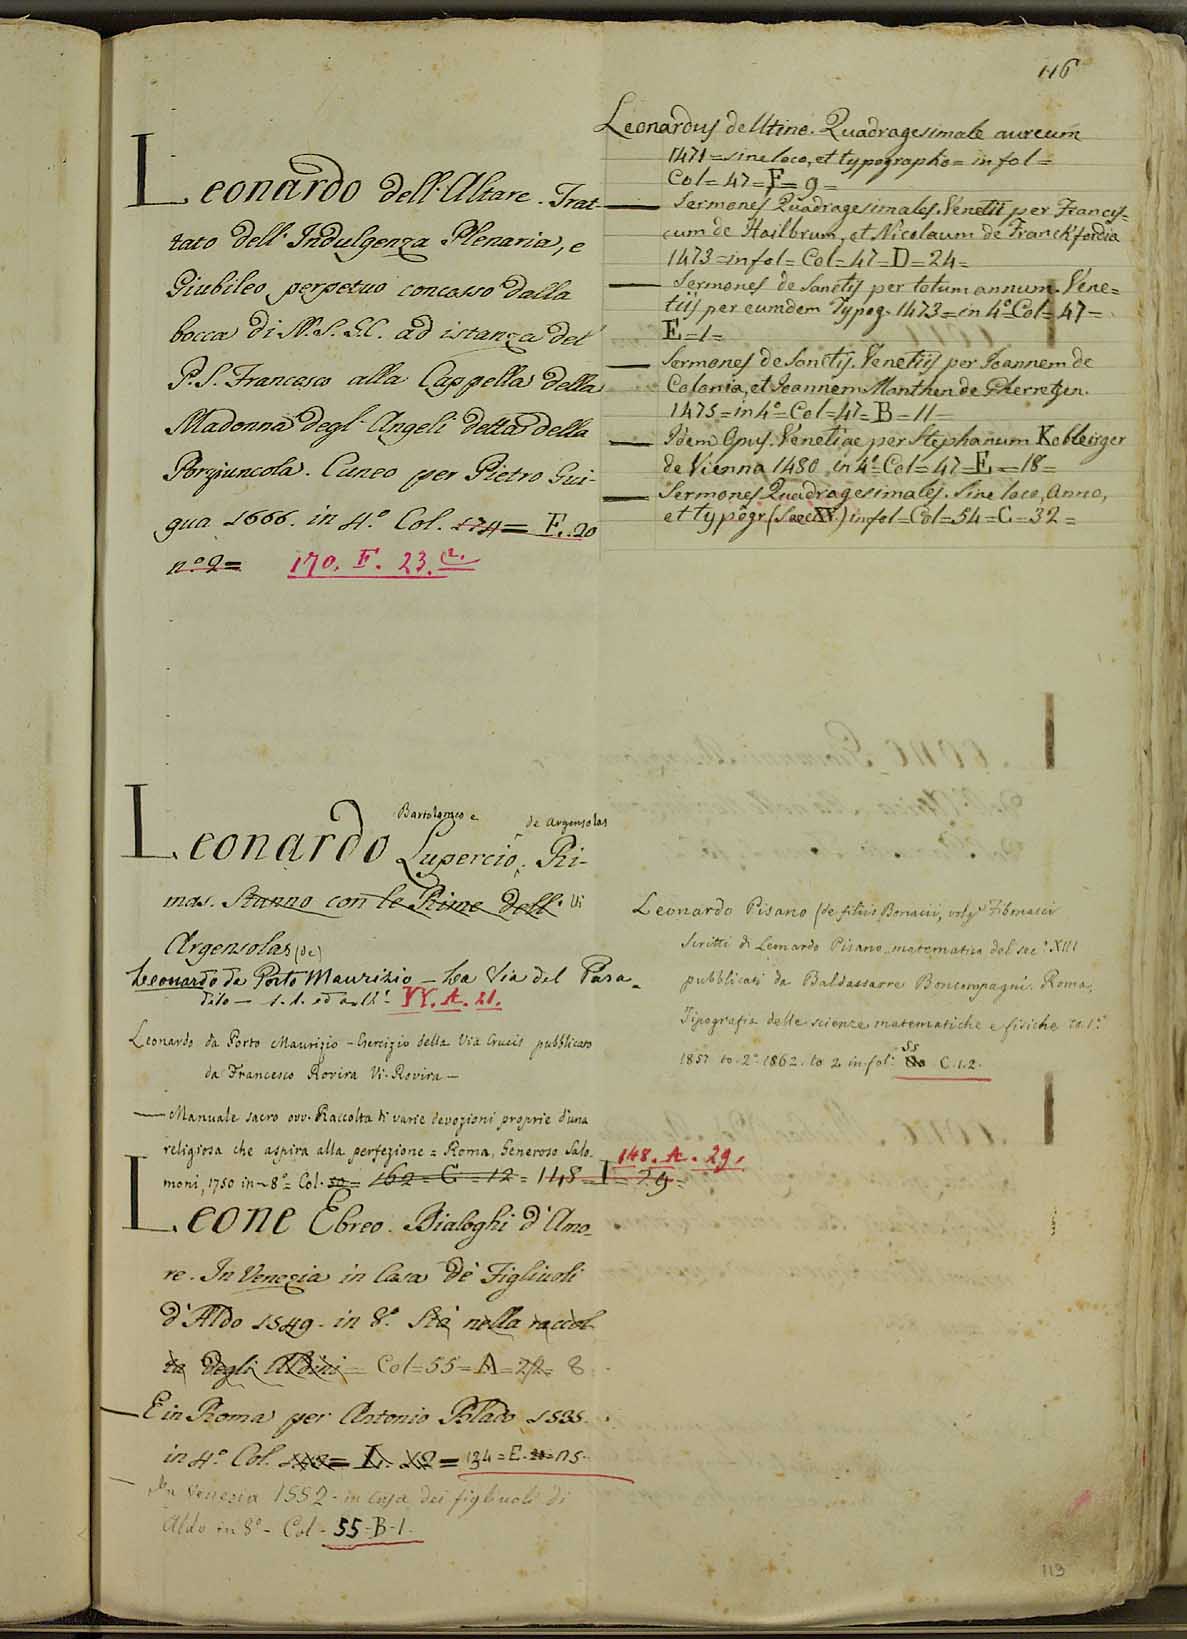 116
Leonardo dell'Altare. Trat-
tato dell'Indulgenza Plenaria, e
Giubileo perpetuo concesso dalla
bocca di N. S. G. C. ad istanza del
P. S. Francesco alla Cappella della
Madonna degl'Angeli detta della
Porziuncola. Cuneo per Pietro Gui-
gua 1666. in 4.º Col. 174 = F. 20
n.º 2 = 170. F. 23.
Leonardus de Utino. Quadragesimale aureum
1471 = sine loco, et typographo = in fol =
Col = 47 = F = 9 =
— Sermones Quadragesimales. Venetiis per Francis-
cum de Hailbrum, et Nicolaum de Franckfordia
1473 = in fol = Col = 47 = D = 24 =
— Sermones de Sanctis per totum annum. Vene=
tiis per eumdem Typog. 1473 = in 4º = Col = 47 =
E = 1 =
— Sermones de Sanctis. Venetiis per Joannem de
Colonia, et Joannem Manthen de Gherretzen.
1475 = in 4º = Col = 47 = B = 11 =
— Idem Opus. Venetiae per Stephanum Kobleirger
de Vienna 1480 in 4º = Col = 47 = E = 18 =
— Sermones Quadragesimales. Sine loco, anno,
et typogr (Saec XV.) in fol = Col = 54 = C = 32 =
Bartolomeo e de Argensolas
Leonardo Lupercio. Ri-
mas. Stanno con le Rime dell' Vi
Argensolas (de)
Leonardo da Porto Maurizio — La Via del Para-
diso — s. l. ed a. VV. A. 21.
Leonardo da Porto Maurizio — Esercizio della Via Crucis pubblicato
da Francesco Rovira Vi. Rovira —
— Manuale sacro ovv. Raccolta di varie devozioni proprie d'una
religiosa che aspira alla perfezione = Roma, Generoso Salo-
moni, 1750 in 8º = Col. 162 = C = 12 = 148 = I = 29 =
148. A. 29.
Leonardo Pisano (de filiis Bonacii, volg.º Fibonacci
Scritti di Leonardo Pisano matematico del sec.º XIII
pubblicati da Baldassarre Boncompagni. Roma,
Tipografia delle scienze matematiche e fisiche to. 1.º
1857 to. 2.º 1862. to 2 in fol: 55 C. 1.2.
Leone Ebreo. Dialoghi d'Amo-
re. In Venezia in Casa de' Figliuoli
d'Aldo 1549. in 8.º Sta nella raccol-
ta degli Aldini = Col = 55 = A = 8
— E in Roma per Antonio Blado 1535.
in 4.º Col. = 134 = E. 15.
— In Venezia 1552 in casa dei figliuoli di
Aldo in 8º - Col - 55 - B - 1.
113